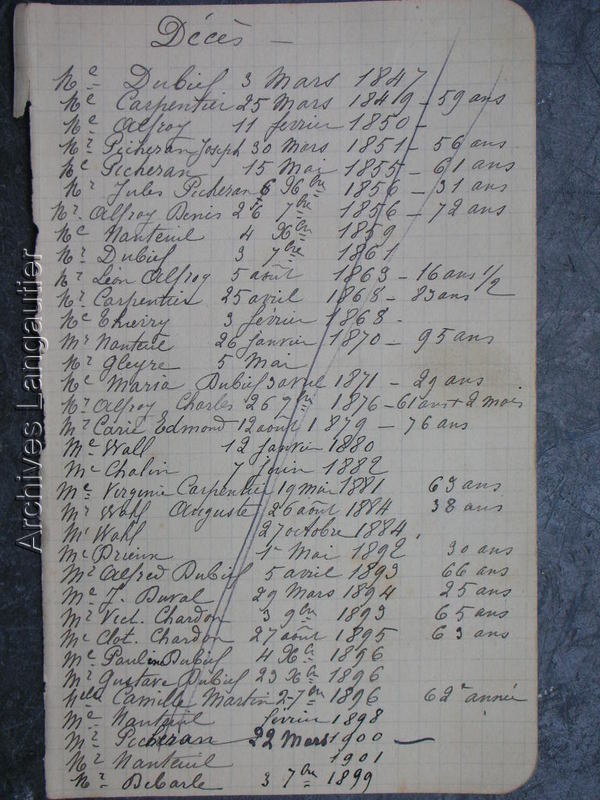 Décès —
Me Dubief 3 Mars 1847
Me Carpentier 25 Mars 1849 – 59 ans
Me Alfroy 11 février 1850 –
Mr Picheran Joseph 30 Mars 1851 – 56 ans
Me Picheran 15 Mai 1855 – 61 ans
Mr Jules Picheran 6 Xbre 1856 – 31 ans
Mr Alfroy Denis 26 7bre 1856 – 72 ans
Me Nanteuil 4 Xbre 1859
Mr Dubief 3 7bre 1861
Mr Léon Alfroy 5 août 1863 – 16 ans 1/2
Mr Carpentier 25 avril 1868 – 83 ans
Me Thierry 3 février 1868 –
Mr Nanteuil 26 janvier 1870 – 95 ans
Mr Gleyre 5 Mai
Me Maria Dubief 3 avril 1871 – 29 ans
Mr Alfroy Charles 26 7bre 1876 – 61 ans + 2 mois
Mr Carié Edmond 12 août 1879 – 76 ans
Me Wall 12 janvier 1880
Me Chalin 7 juin 1882
Me Virginie Carpentier 19 mai 1881 63 ans
Mr Wahl Auguste 26 août 1884 38 ans
Mr Wahl 27 octobre 1884
Me Drieux 1r Mai 1892 30 ans
Mr Alfred Dubief 5 avril 1893 66 ans
Me J. Duval 29 Mars 1894 25 ans
Mr Vict. Chardon 3 9bre 1893 65 ans
Me Clot. Chardon 27 août 1895 63 ans
Me Pauline Dubief 4 Xbre 1896
Mr Gustave Dubief 23 Xbre 1896
Melle Camille Martin 2 7bre 1896 62e année
Me Nanteuil février 1898
Mr Picheran 22 Mars 1900 —
Mr Nanteuil 1901
Mr Debarle 3 7bre 1899
Archives Langautier